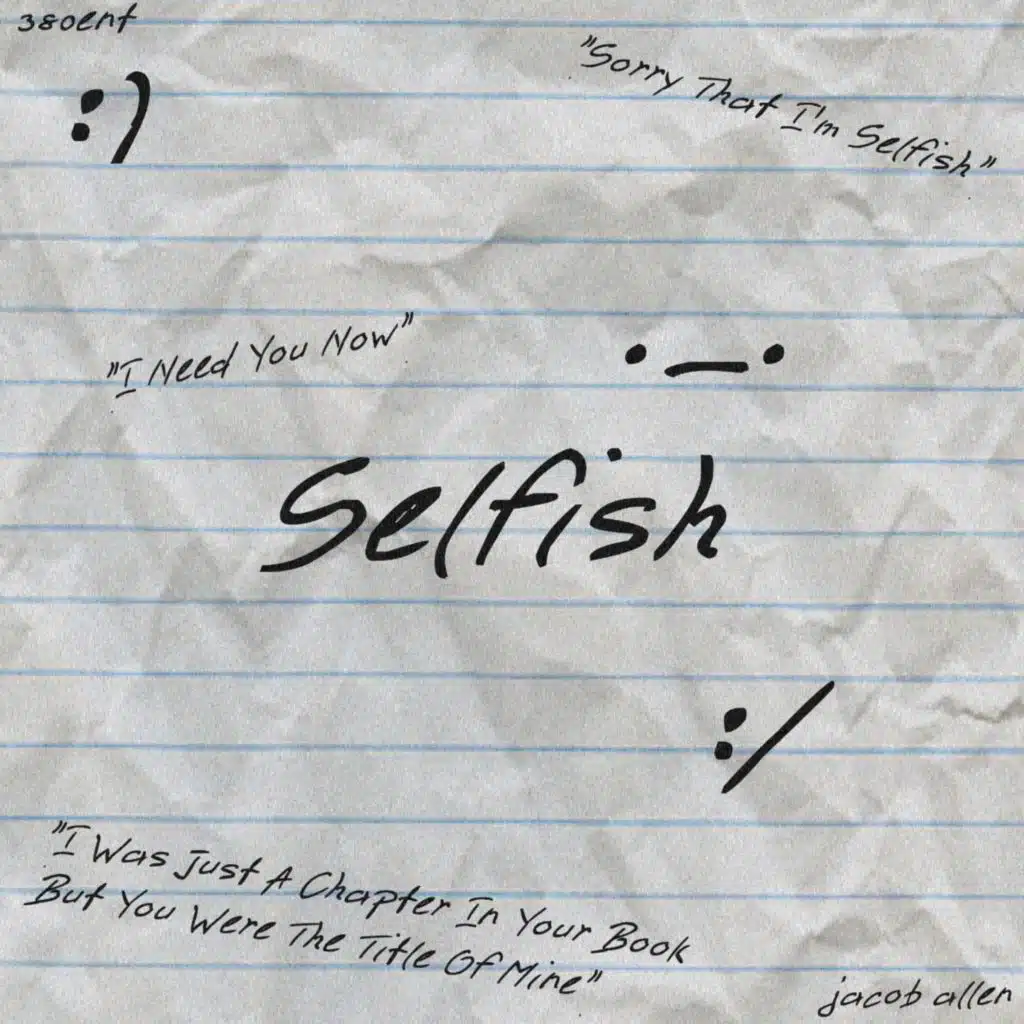 380ent
:)
"Sorry That I'm Selfish"
"I Need You Now"
• — •
Selfish
:/
"I Was Just A Chapter In Your Book
But You Were The Title Of Mine"
jacob allen